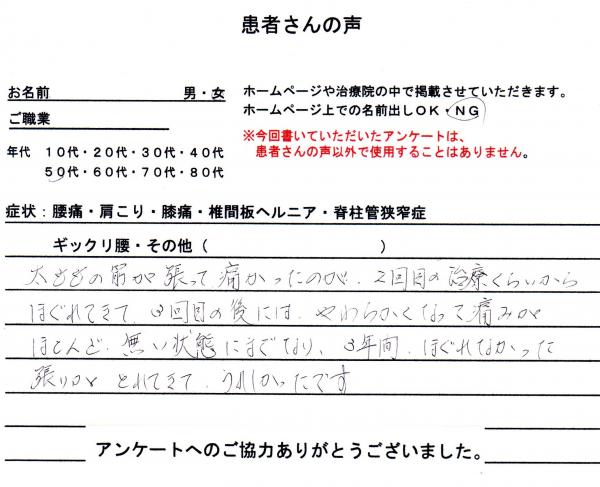 患者さんの声
お名前 男・女 ホームページや治療院の中で掲載させていただきます。
ご職業 ホームページ上での名前出しOK・NG
※今回書いていただいたアンケートは、
年代 10代・20代・30代・40代 患者さんの声以外で使用することはありません。
50代・60代・70代・80代
症状：腰痛・肩こり・膝痛・椎間板ヘルニア・脊柱管狭窄症
ギックリ腰・その他（ ）
太ももの筋が張って痛かったのが、2回目の治療くらいから
ほぐれてきて、3回目の後には、やわらかくなって痛みが
ほとんど、無い状態にまでなり、3年間、ほぐれなかった
張りがとれてきて、うれしかったです
アンケートへのご協力ありがとうございました。